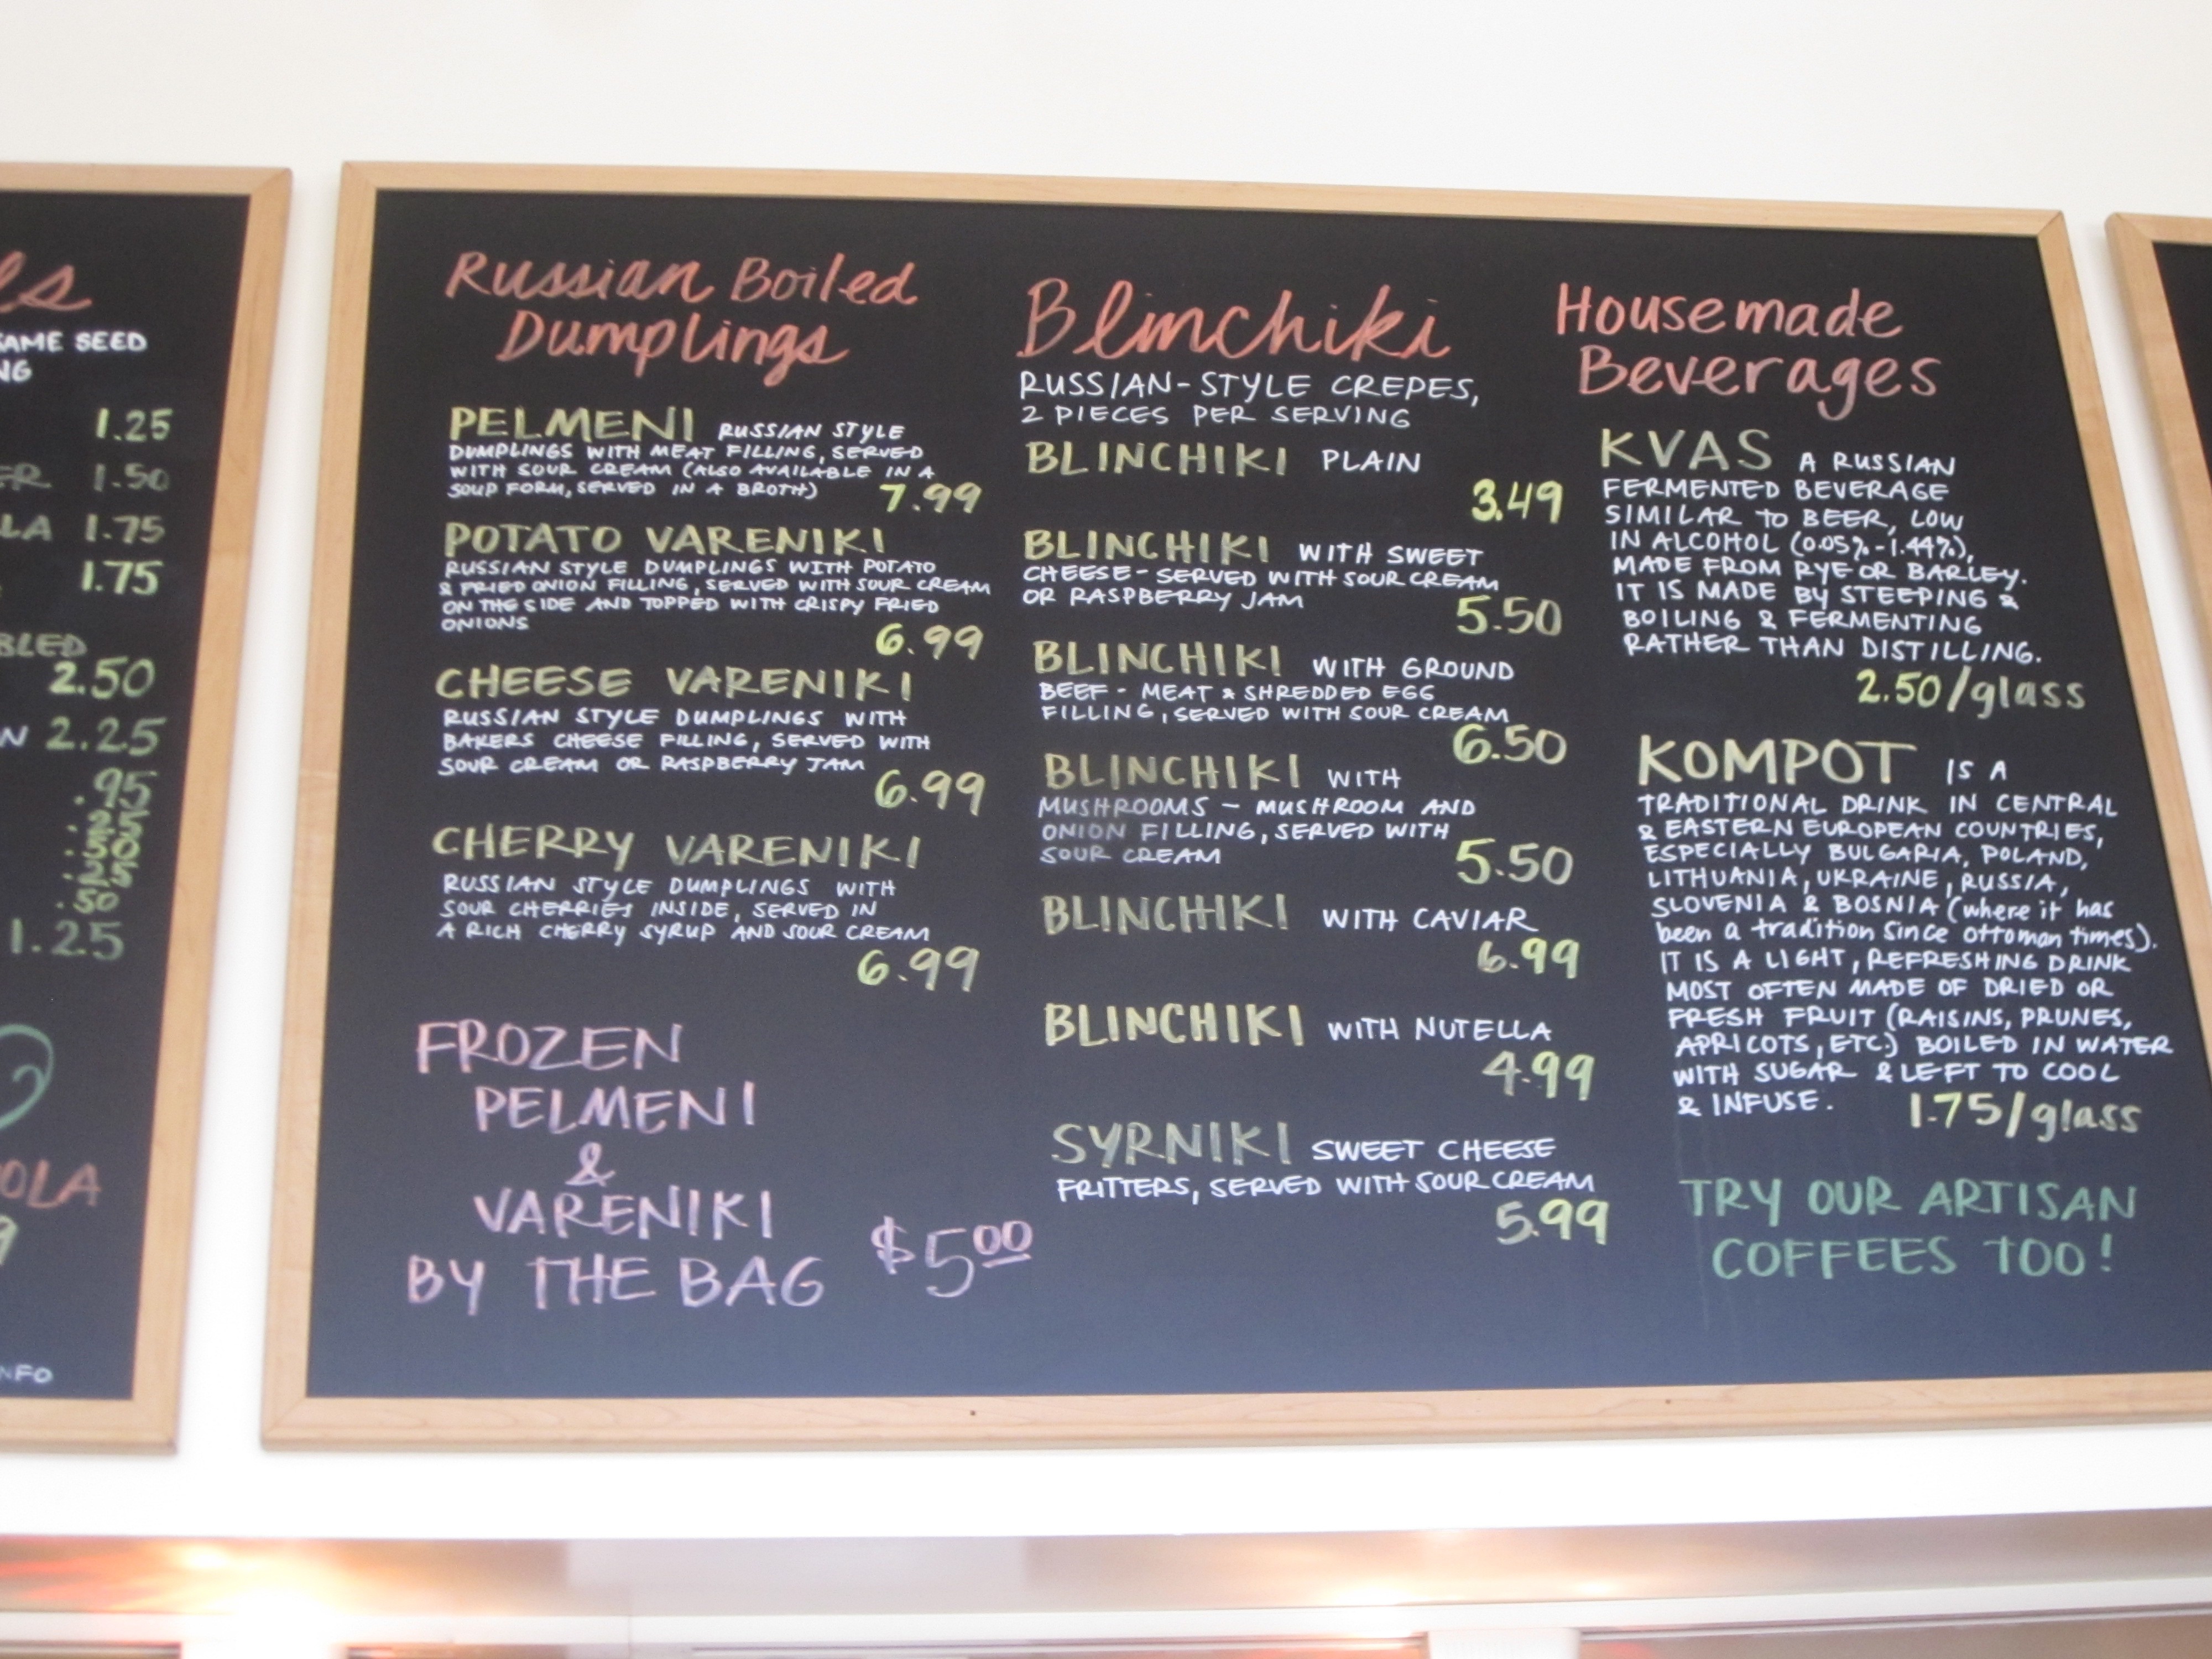 ls
SAME SEED
NG
1.25
ER 1.50
LA 1.75
1.75
BLED
2.50
N 2.25
.95
.25
.50
.25
.50
1.25
OLA
9
INFO
Russian Boiled
Dumplings
PELMENI RUSSIAN STYLE
DUMPLINGS WITH MEAT FILLING, SERVED
WITH SOUR CREAM (ALSO AVAILABLE IN A
SOUP FORM, SERVED IN A BROTH)
7.99
POTATO VARENIKI
RUSSIAN STYLE DUMPLINGS WITH POTATO
& FRIED ONION FILLING, SERVED WITH SOUR CREAM
ON THE SIDE AND TOPPED WITH CRISPY FRIED
ONIONS
6.99
CHEESE VARENIKI
RUSSIAN STYLE DUMPLINGS WITH
BAKERS CHEESE FILLING, SERVED WITH
SOUR CREAM OR RASPBERRY JAM
6.99
CHERRY VARENIKI
RUSSIAN STYLE DUMPLINGS WITH
SOUR CHERRIES INSIDE, SERVED IN
A RICH CHERRY SYRUP AND SOUR CREAM
6.99
FROZEN
PELMENI
&
VARENIKI
BY THE BAG $5.00
Blinchiki
RUSSIAN-STYLE CREPES,
2 PIECES PER SERVING
BLINCHIKI PLAIN
3.49
BLINCHIKI WITH SWEET
CHEESE - SERVED WITH SOUR CREAM
OR RASPBERRY JAM
5.50
BLINCHIKI WITH GROUND
BEEF - MEAT & SHREDDED EGG
FILLING, SERVED WITH SOUR CREAM
6.50
BLINCHIKI WITH
MUSHROOMS - MUSHROOM AND
ONION FILLING, SERVED WITH
SOUR CREAM
5.50
BLINCHIKI WITH CAVIAR
6.99
BLINCHIKI WITH NUTELLA
4.99
SYRNIKI SWEET CHEESE
FRITTERS, SERVED WITH SOUR CREAM
5.99
Housemade
Beverages
KVAS A RUSSIAN
FERMENTED BEVERAGE
SIMILAR TO BEER, LOW
IN ALCOHOL (0.05%-1.44%),
MADE FROM RYE OR BARLEY.
IT IS MADE BY STEEPING &
BOILING & FERMENTING
RATHER THAN DISTILLING.
2.50/glass
KOMPOT IS A
TRADITIONAL DRINK IN CENTRAL
& EASTERN EUROPEAN COUNTRIES,
ESPECIALLY BULGARIA, POLAND,
LITHUANIA, UKRAINE, RUSSIA,
SLOVENIA & BOSNIA (where it has
been a tradition since ottoman times).
IT IS A LIGHT, REFRESHING DRINK
MOST OFTEN MADE OF DRIED OR
FRESH FRUIT (RAISINS, PRUNES,
APRICOTS, ETC.) BOILED IN WATER
WITH SUGAR & LEFT TO COOL
& INFUSE.
1.75/glass
TRY OUR ARTISAN
COFFEES TOO!